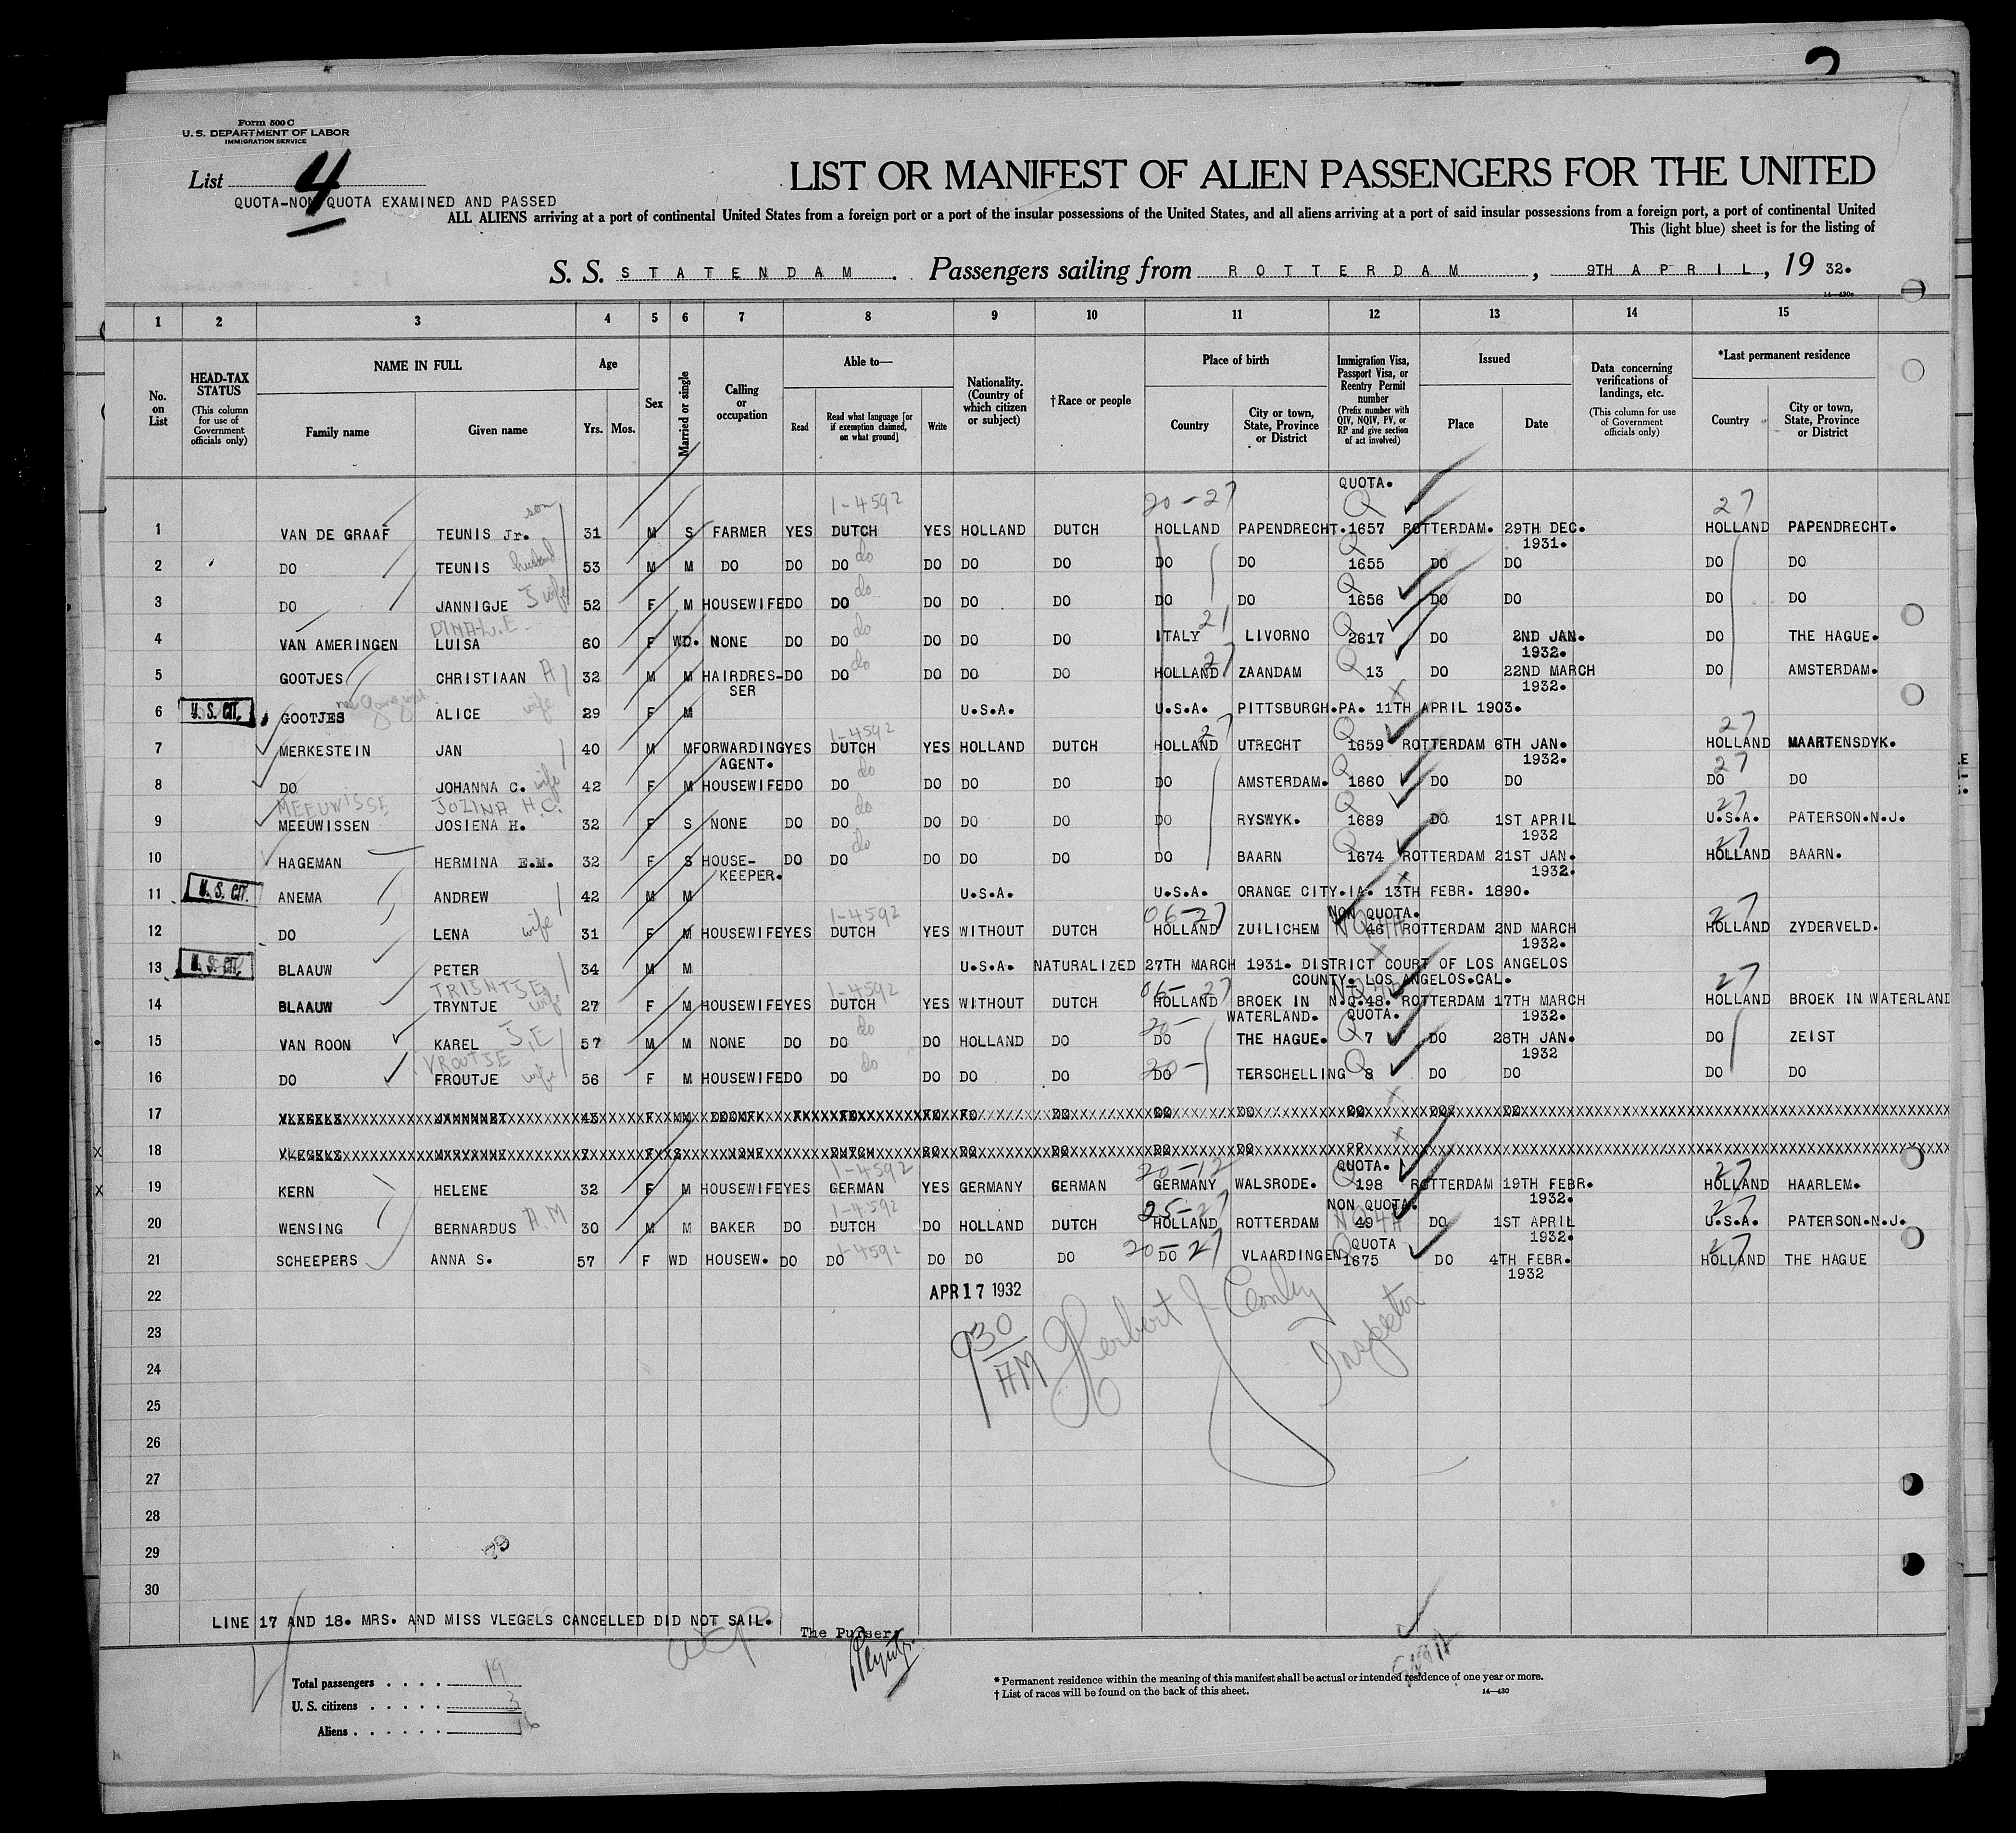 Form 500 C
U. S. DEPARTMENT OF LABOR
IMMIGRATION SERVICE
List 4
QUOTA-NON QUOTA EXAMINED AND PASSED
LIST OR MANIFEST OF ALIEN PASSENGERS FOR THE UNITED
ALL ALIENS arriving at a port of continental United States from a foreign port or a port of the insular possessions of the United States, and all aliens arriving at a port of said insular possessions from a foreign port, a port of continental United
This (light blue) sheet is for the listing of
S. S. STATENDAM. Passengers sailing from ROTTERDAM, 9TH APRIL, 19 32.
1 2 3 4 5 6 7 8 9 10 11 12 13 14 15
No. on List
HEAD-TAX STATUS (This column for use of Government officials only)
NAME IN FULL Family name Given name
Age Yrs. Mos.
Sex
Married or single
Calling or occupation
Able to— Read Read what language [or if exemption claimed, on what ground] Write
Nationality. (Country of which citizen or subject)
†Race or people
Place of birth Country City or town, State, Province or District
Immigration Visa, Passport Visa, or Reentry Permit number (Prefix number with QIV, NQIV, PV, or RP and give section of act involved)
Issued Place Date
Data concerning verifications of landings, etc. (This column for use of Government officials only)
*Last permanent residence Country City or town, State, Province or District
QUOTA.
1-4592 20-27 Q 27
1 VAN DE GRAAF TEUNIS Jr. son 31 M S FARMER YES DUTCH YES HOLLAND DUTCH HOLLAND PAPENDRECHT. 1657 ROTTERDAM. 29TH DEC. 1931. HOLLAND PAPENDRECHT.
2 DO TEUNIS husband 53 M M DO DO DO do DO DO DO DO DO Q 1655 DO DO DO DO
3 DO JANNIGJE J wife 52 F M HOUSEWIFE DO DO do DO DO DO DO DO Q 1656 DO DO DO DO
DINA L.E.
4 VAN AMERINGEN LUISA 60 F WD. NONE DO DO do DO DO DO ITALY 21 LIVORNO Q 2617 DO 2ND JAN. 1932. DO THE HAGUE.
5 GOOTJES CHRISTIAAN A 32 M M HAIRDRES-SER DO DO do DO DO DO HOLLAND 27 ZAANDAM Q 13 DO 22ND MARCH 1932. DO AMSTERDAM.
6 U. S. CIT. GOOTJES ALICE wife 29 F M U.S.A. U.S.A. PITTSBURGH.PA. 11TH APRIL 1903.
1-4592 27 Q 27
7 MERKESTEIN JAN 40 M M FORWARDING AGENT. YES DUTCH YES HOLLAND DUTCH HOLLAND UTRECHT 1659 ROTTERDAM 6TH JAN. 1932. HOLLAND MAARTENSDYK.
8 DO JOHANNA C. wife 42 F M HOUSEWIFE DO DO do DO DO DO DO AMSTERDAM. Q 1660 DO DO 27 DO DO
MEEUWISSE JOZINA H.C.
9 MEEUWISSEN JOSIENA H. 32 F S NONE DO DO do DO DO DO DO RYSWYK. Q 1689 DO 1ST APRIL 1932 27 U.S.A. PATERSON.N.J.
10 HAGEMAN HERMINA E.M. 32 F S HOUSE-KEEPER. DO DO do DO DO DO DO BAARN Q 1674 ROTTERDAM 21ST JAN. 1932. 27 HOLLAND BAARN.
11 U. S. CIT. ANEMA ANDREW 42 M M U.S.A. U.S.A. ORANGE CITY.IA. 13TH FEBR. 1890.
1-4592 06-27 NON QUOTA. 27
12 DO LENA wife 31 F M HOUSEWIFE YES DUTCH YES WITHOUT DUTCH HOLLAND ZUILICHEM 46 ROTTERDAM 2ND MARCH 1932. HOLLAND ZYDERVELD.
13 U. S. CIT. BLAAUW PETER 34 M M U.S.A. NATURALIZED 27TH MARCH 1931. DISTRICT COURT OF LOS ANGELOS
COUNTY. LOS ANGELOS.CAL.
TRIJNTJE 1-4592 06-27 27
14 BLAAUW TRYNTJE wife 27 F M HOUSEWIFE YES DUTCH YES WITHOUT DUTCH HOLLAND BROEK IN WATERLAND. N.Q.48. ROTTERDAM 17TH MARCH 1932. HOLLAND BROEK IN WATERLAND
QUOTA.
15 VAN ROON KAREL J.E 57 M M NONE DO DO do DO HOLLAND DO 20- DO THE HAGUE. Q 7 DO 28TH JAN. 1932 DO ZEIST
VROUTJE
16 DO FROUTJE wife 56 F M HOUSEWIFE DO DO do DO DO DO 20- DO TERSCHELLING Q 8 DO DO DO DO
17 VLEGELS
18 VLEGELS DUTCH
1-4592 20-12 QUOTA. 27
19 KERN HELENE 32 F M HOUSEWIFE YES GERMAN YES GERMANY GERMAN GERMANY WALSRODE. Q 198 ROTTERDAM 19TH FEBR. 1932. HOLLAND HAARLEM.
1-4592 25-27 NON QUOTA. 27
20 WENSING BERNARDUS A.M 30 M M BAKER DO DUTCH DO HOLLAND DUTCH HOLLAND ROTTERDAM 49 DO 1ST APRIL 1932. U.S.A. PATERSON.N.J.
QUOTA
21 SCHEEPERS ANNA S. 57 F WD HOUSEW. DO DO 1-4592 DO DO DO 20-27 DO VLAARDINGEN 1675 DO 4TH FEBR. 1932 27 HOLLAND THE HAGUE
22 APR 17 1932
23 930 AM Herbert J Conly Inspector
24
25
26
27
28
29
30
LINE 17 AND 18. MRS. AND MISS VLEGELS CANCELLED DID NOT SAIL.
The Purser
Total passengers . . . . 19
U. S. citizens . . . . . 3
Aliens . . . . . . 16
* Permanent residence within the meaning of this manifest shall be actual or intended residence of one year or more.
† List of races will be found on the back of this sheet.
14—430